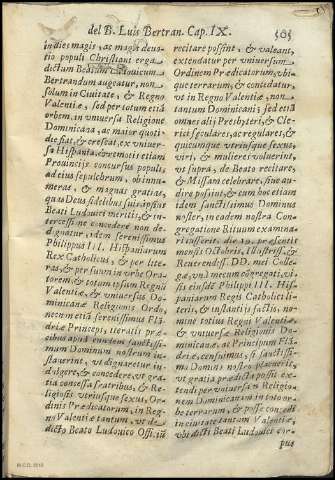 del B. Luis Bertran. Cap. IX. 505
in dies magis, ac magis deuo-
tio populi Christiani erga
dictum Beatum Ludouicum
Bertrandum augeatur, non
solum in Ciuitate, & Regno
Valentiæ, sed per totum etiã
orbem, in vniuersa Religione
Dominicana, ac maior quoti-
die fiat, & crescat, ex vniuer-
sa Hispania, & remotis etiam
Prouincijs concursus populi,
ad eius sepulchrum, ob innu-
meras, & magnas gratias,
quas Deus fidelibus suis ipsius
Beati Ludouici meritis, & in-
tercessione concedere non de-
dignatur, idem serenissimus
Philippus III. Hispaniarum
Rex Catholicus, & per lite-
ras, & per suum in vrbe Ora-
torem, & totum ipsum Regnũ
Valentiæ, & vniuersus Do-
minicanæ Religionis Ordo,
necnon etiã serenissimus Flã-
driæ Princeps, iteratis præ-
cibus apud eundem sanctissi-
mum Dominum nostrum in-
stauerint, vt dignaretur in-
dulgere, & concedere, vt gra-
tia concessa fratribus, & Re-
ligiosis vtriusque sexus, Or-
dinis Prædicatorum, in Reg-
no Valentiæ tantum, vt de
dicto Beato Ludouico Offi-iũ
recitare possint, & valeant,
extendatur per vniuersum
Ordinem Prædicatorum, vbi-
que terrarum, & concedatur,
vt in Regno Valentiæ, non
tantum Dominicani, sed etiã
omnes alij Presbyteri, & Cle-
rici seculares, ac regulares, &
quicumque vtriusque sexus,
viri, & mulieres voluerint,
vt supra, de Beato recitare,
& Missam celebrare, siue au-
dire possint, & cum hoc etiam
idem sanctissimus Dominus
noster, in eadem nostra Con-
gregatione Rituum examina-
ri iusserit, die 19. præsentis
mensis Octobris, Illustriss. &
Reuerendiss. DD. mei Colle-
gæ, vnà mecum congregati, vi-
sis eiusdẽ Philippi III. Hi-
spaniarum Regis Catholici li-
teris, & instantijs factis, no-
mine totius Regni Valentiæ,
& vniuersæ Religionis Do-
minicanæ, ac Principum Flã-
driæ, censuimus, si sanctissi-
mo Domino nostro placuerit,
vt gratia prædicta possit ex-
tendi per vniuersam Religio-
nem Dominicanam in toto or-
be terrarum, & posse concedi
in ciuitate tantum Valentiæ
vbi dicti Beati Ludouici cor-
pus